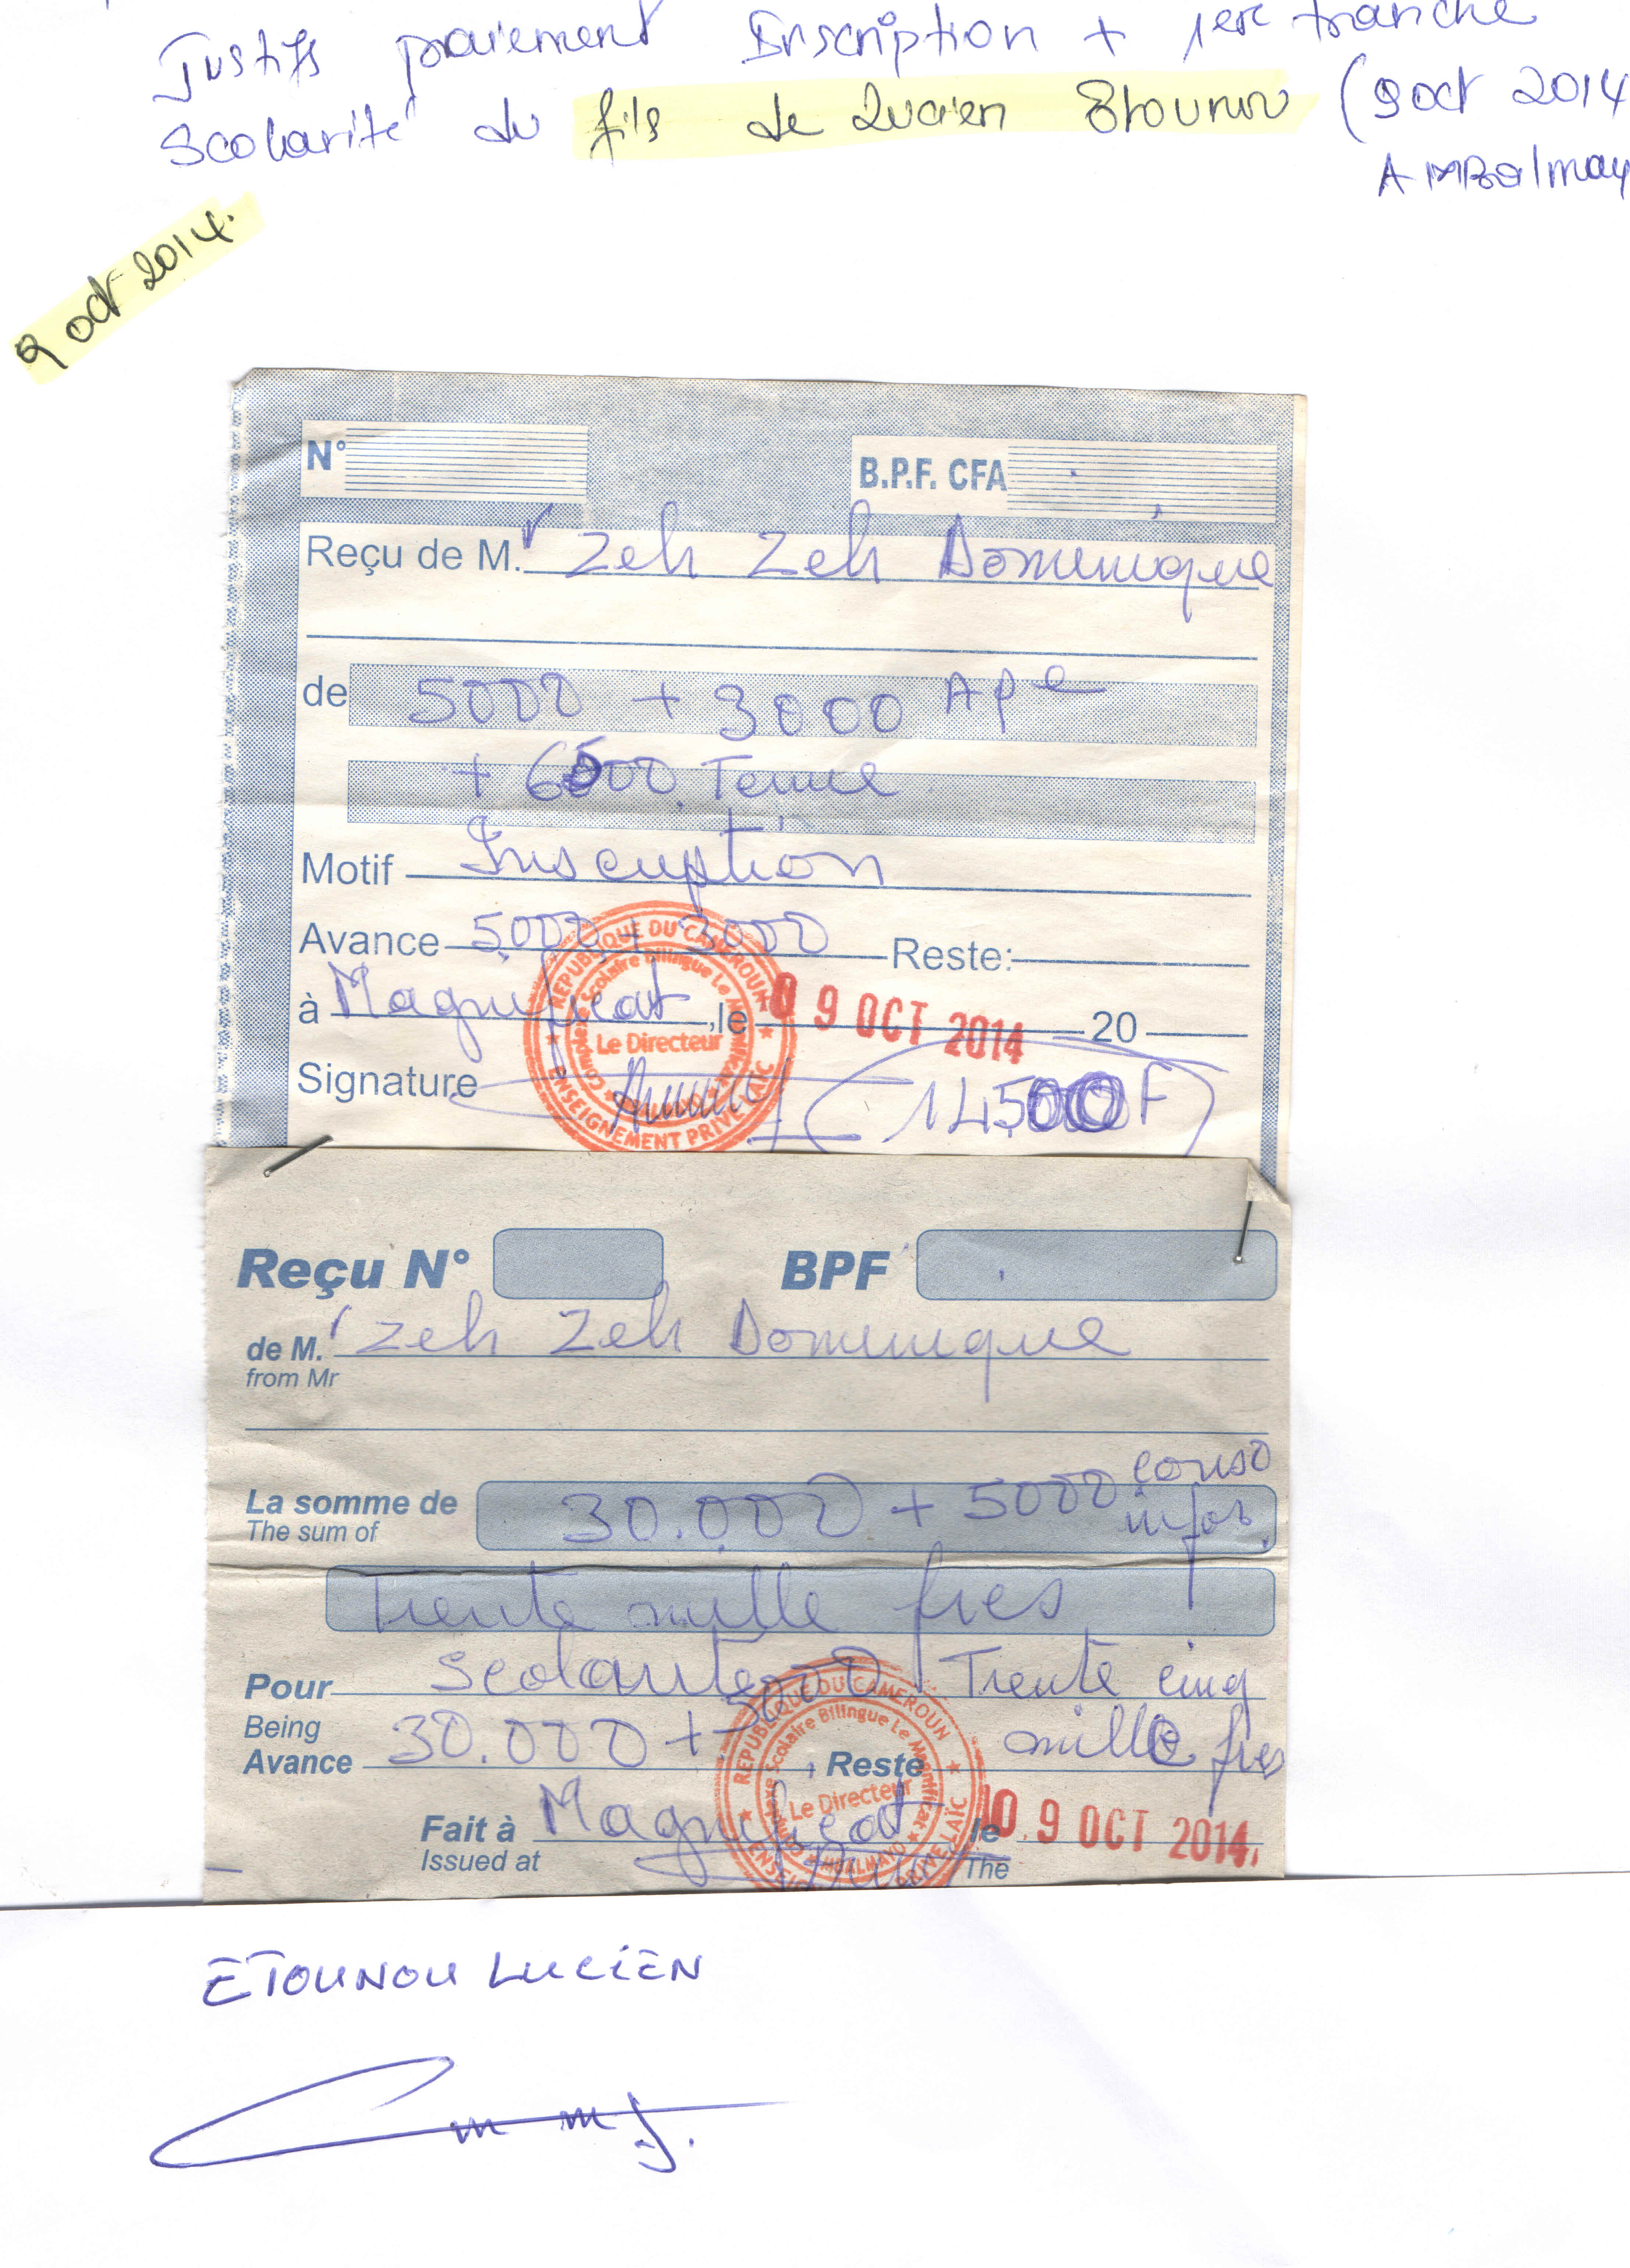 Justifs paiement Inscription + 1ere tranche
Scolarité du fils de Lucien Etounou (9 oct 2014
A MBalmay
9 oct 2014.
N°
B.P.F. CFA
Reçu de M. r Zeh Zeh Dominique
de 5000 + 3000 APe
+ 6500 Tenue
Motif Inscription
Avance 5000 + 3000 Reste:
à Magnificat, le 09 OCT 2014 20
Signature
14500F
REPUBLIQUE DU CAMEROUN
Complexe Scolaire Bilingue Le Magnificat
Le Directeur
ENSEIGNEMENT PRIVE LAÏC
Reçu N° BPF
de M. r Zeh Zeh Dominique
from Mr
La somme de 30.000 + 5000 conso infor.
The sum of
Trente mille frcs
Pour Scolarité Trente cinq
Being
Avance 30.000 + 5000, Reste mille frcs
Fait à Magnificat le 09 OCT 2014
Issued at The
REPUBLIQUE DU CAMEROUN
Complexe Scolaire Bilingue Le Magnificat
Le Directeur
MBALMAYO
ENSEIGNEMENT PRIVE LAÏC
ETOUNOU LUCIEN